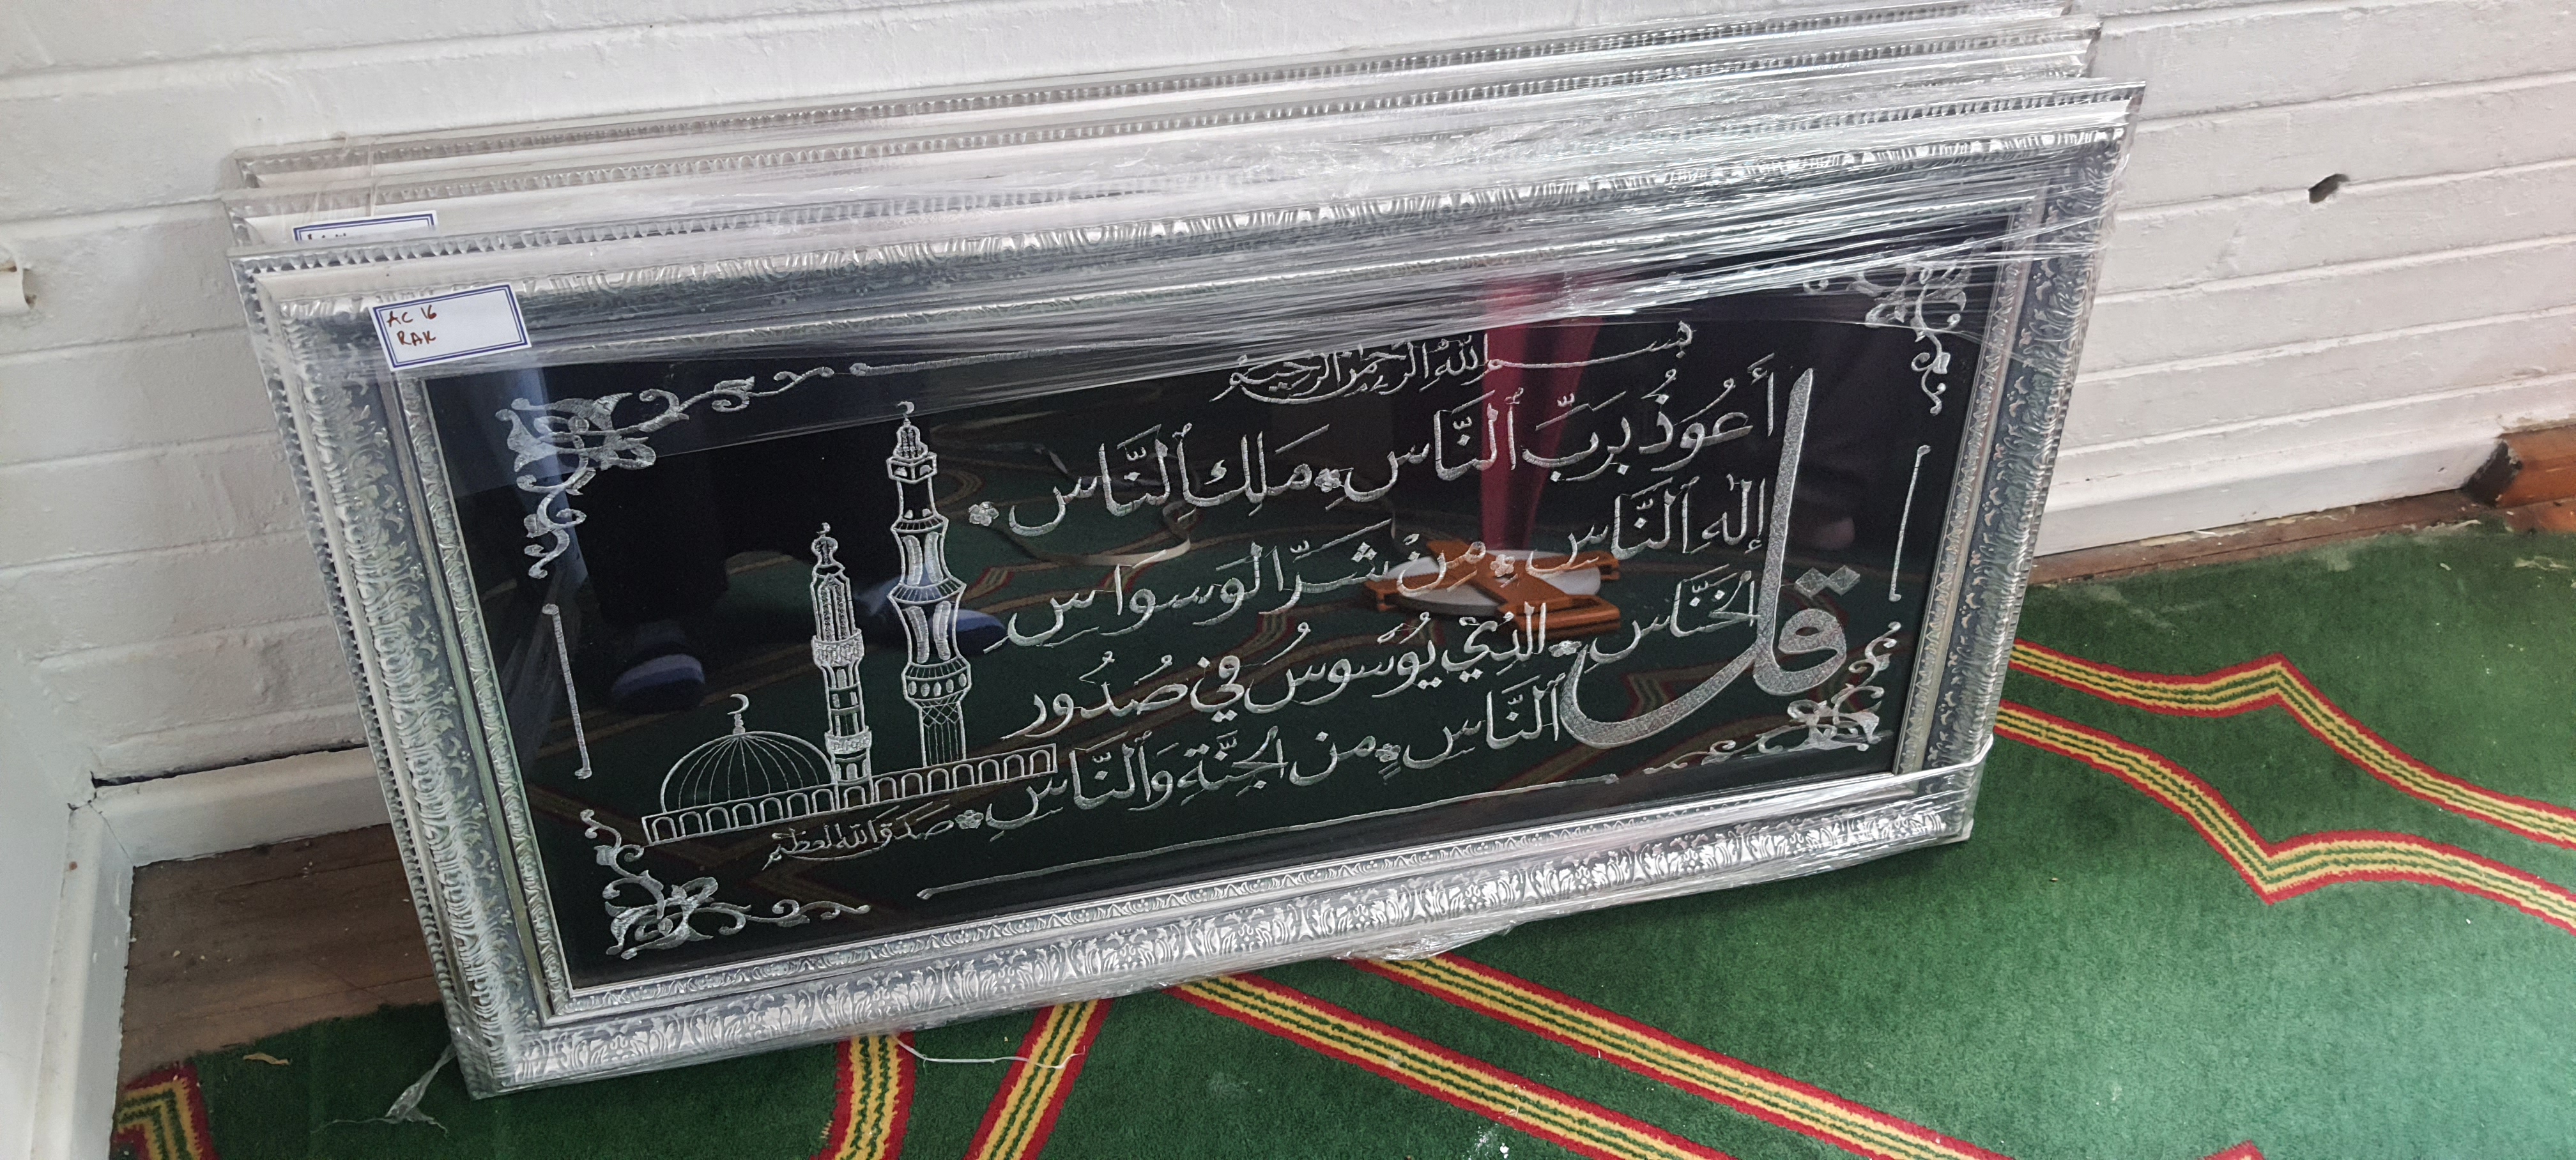 AC 16
RAK
بسم الله الرحمن الرحيم
قل أَعُوذُ بِرَبِّ ٱلنَّاسِ مَلِكِ ٱلنَّاسِ
إِلٰهِ ٱلنَّاسِ مِنْ شَرِّ الوَسوَاسِ
الخَنَّاسِ الذِي يُوَسوِسُ فِي صُدُورِ
ٱلنَّاسِ مِن الجِنَّةِ وَٱلنَّاسِ
صدق الله العظيم